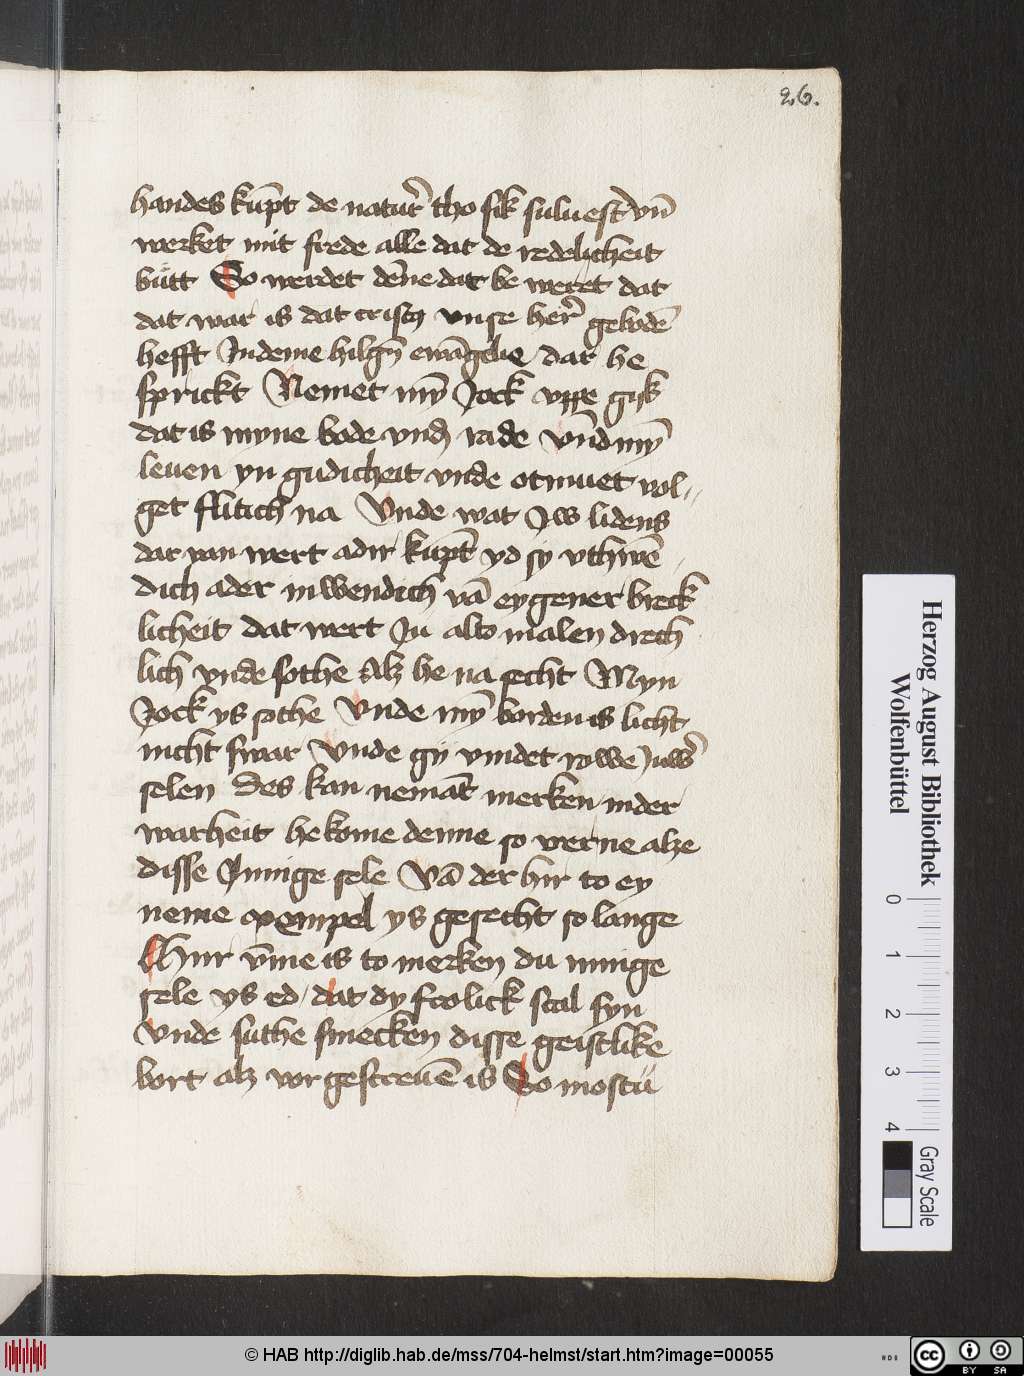 26.
handes kūpt de natur̄ tho sik suluest vn̄
werket mit frede alle dat de redelicheit
bütt So werdet dēne dat be weret dat
dat war is dat cristꝯ vnse her̄ gebodē
hefft Jndeme hilgē ewāgelie dar he
sprickt Nemet mȳ Jock vppe gyk
dat is myne bode vnd rade vn̄d mȳ
leuen yn gudicheit vnde otmuet vol-
get flitich na Vnde wat Jw lidens
dar van wert adir kūpt yd sy vthwē
dich ader inwendich vā eygener breck
licheit dat wert Ju alto malen drech
lich vnde sothe Alz he na secht Myn
Jock ys sothe Vnde mȳ borden is licht
nicht swar Vnde gy vindet rowe Juwer̄
selen Des kan nemāt merken inder
warheit he kome denne so verne alze
disse Jnnige sele Vā der hir to ey
neme exempel ys gesecht so lange
Hir v̄me is to merken du innige
sele ys ed dat dy frolick scal syn
Vnde suthe smecken disse geistlike
bort alz vor gescreuē is So mostu
Herzog August Bibliothek
Wolfenbüttel
0 1 2 3 4
Gray Scale
© HAB http://diglib.hab.de/mss/704-helmst/start.htm?image=00055
cc BY SA